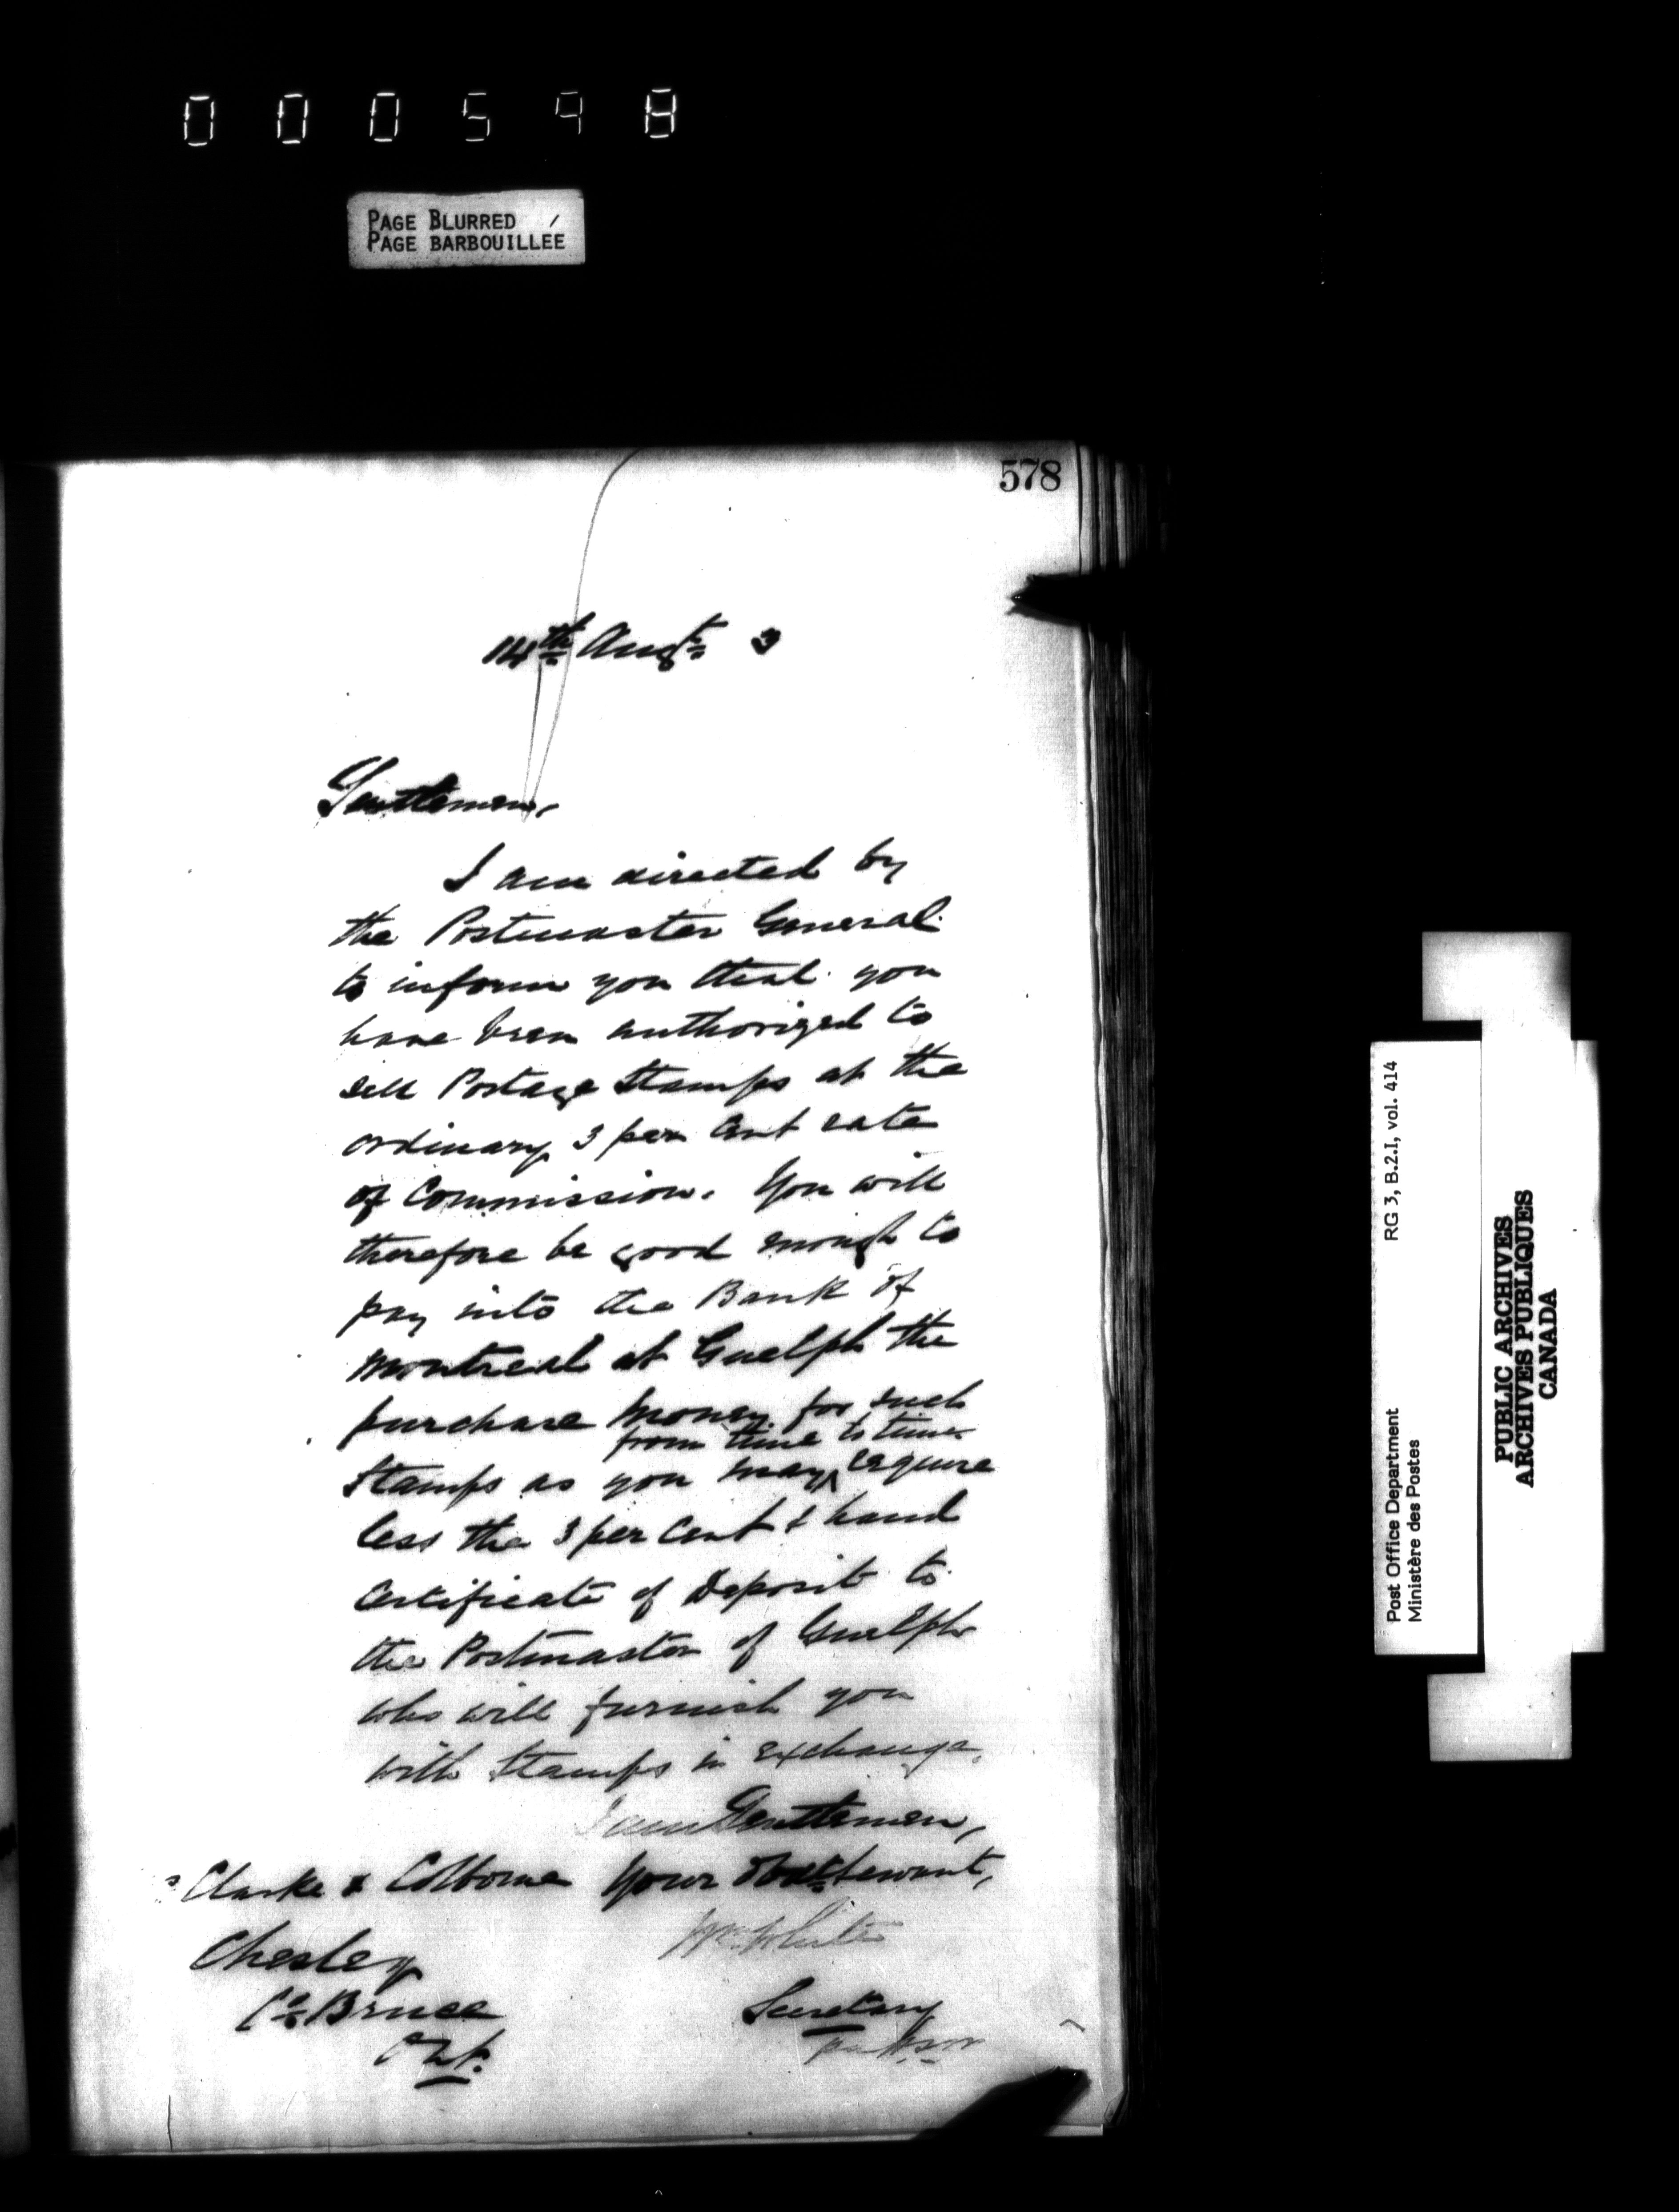 000598
PAGE BLURRED
PAGE BARBOUILLÉE
578
14th Augt 3
Gentlemen,
I am directed by
the Postmaster General
to inform you that you
have been authorized to
sell Postage Stamps at the
ordinary 3 per Cent rate
of Commission. You will
therefore be good enough to
pay into the Bank of
Montreal at Guelph the
purchase money for such
from time to time
Stamps as you may require
less the 3 per Cent & hand
Certificate of Deposit to
the Postmaster of Guelph
who will furnish you
with Stamps in exchange.
I am Gentlemen,
Your Obedt Servant,
Wm White
Secretary
Clarke & Colborne
Chesley
Co Bruce
Ont.
Post Office Department
Ministère des Postes
RG 3, B.2.I, vol. 414
PUBLIC ARCHIVES
ARCHIVES PUBLIQUES
CANADA